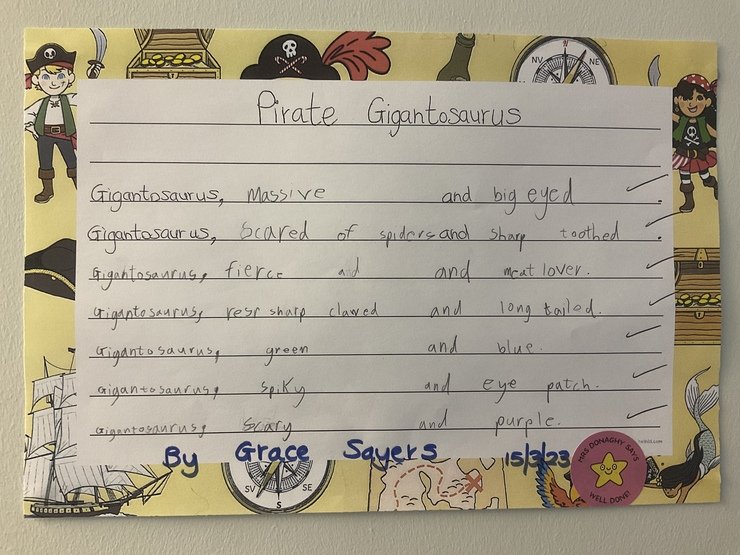 Pirate Gigantosaurus
Gigantosaurus, massive and big eyed.
Gigantosaurus, Scared of spiders and sharp toothed.
Gigantosaurus, fierce and meat lover.
Gigantosaurus, sharp clawed and long tailed.
Gigantosaurus, green and blue.
Gigantosaurus, spiky and eye patch.
Gigantosaurus, scary and purple.
By Grace Sayers 15/3/23
MRS DONAGHY SAYS
WELL DONE!
N
NV
NE
SV
S
SE